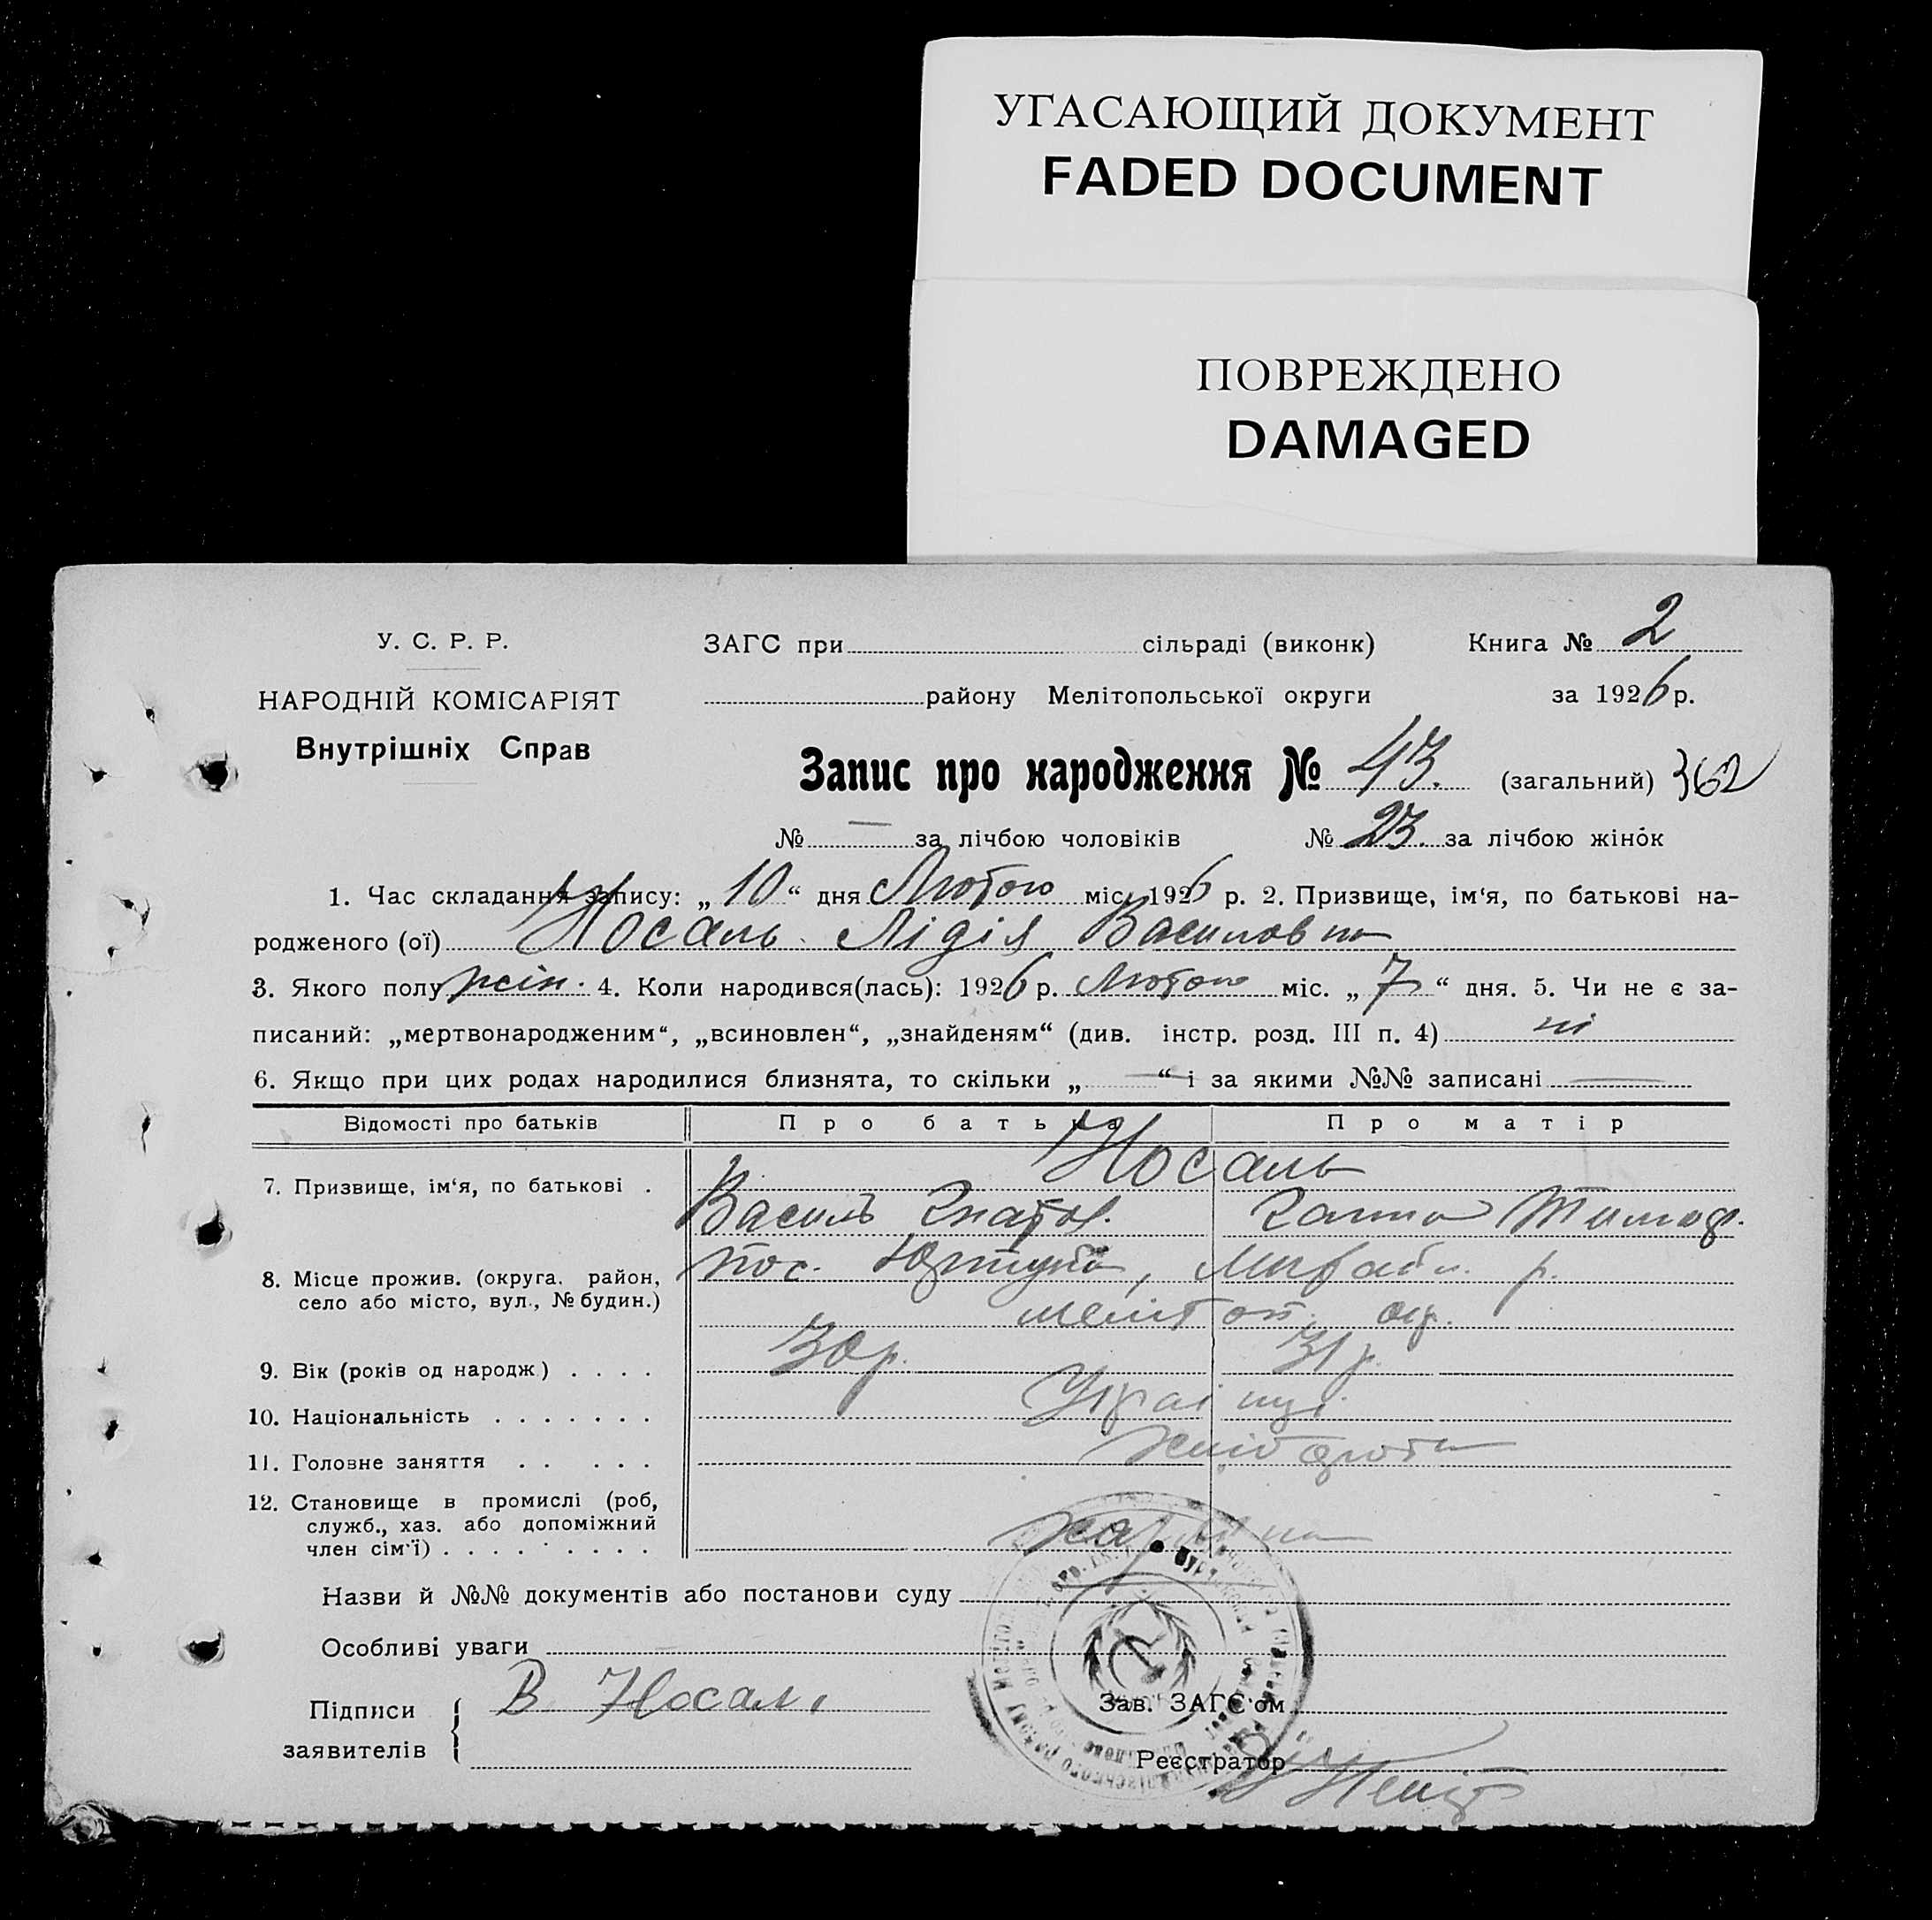 УГАСАЮЩИЙ ДОКУМЕНТ
FADED DOCUMENT
ПОВРЕЖДЕНО
DAMAGED
У. С. Р. Р.
НАРОДНІЙ КОМІСАРІЯТ
Внутрішніх Справ
ЗАГС при сільраді (виконк) Книга № 2
району Мелітопольської округи за 1926 р.
Запис про народження № 43. (загальний) 362
№ — за лічбою чоловіків № 23. за лічбою жінок
1. Час складання запису: „10“ дня Лютого міс. 1926 р. 2. Призвище, ім‘я, по батькові на-
родженого (ої) Носаль Лідія Василовна
3. Якого полу жін. 4. Коли народився(лась): 1926 р. Лютого міс. „7“ дня. 5. Чи не є за-
писаний: „мертвонародженим“, „всиновлен“, „знайденям“ (див. інстр. розд. III п. 4) ні
6. Якщо при цих родах народилися близнята, то скільки „—“ і за якими №№ записані —
Відомості про батьків Про батька Про матір
7. Призвище, ім‘я, по батькові . Носаль
Василь Гнатов. Ганна Тимоф.
8. Місце прожив. (округа, район, село або місто, вул., № будин.) пос. р.
Меліт оп. окр.
9. Вік (років од народж) . . . . 30 р. 31 р.
10. Національність . . . . . . . Украінці
11. Головне заняття . . . . . хлібороби
12. Становище в промислі (роб,
служб., хаз. або допоміжний
член сім‘ї) . . . . . . . . .
Назви й №№ документів або постанови суду
Особливі уваги
Підписи
заявителів
В Носаль
Зав. ЗАГС‘ом
Реєстратор